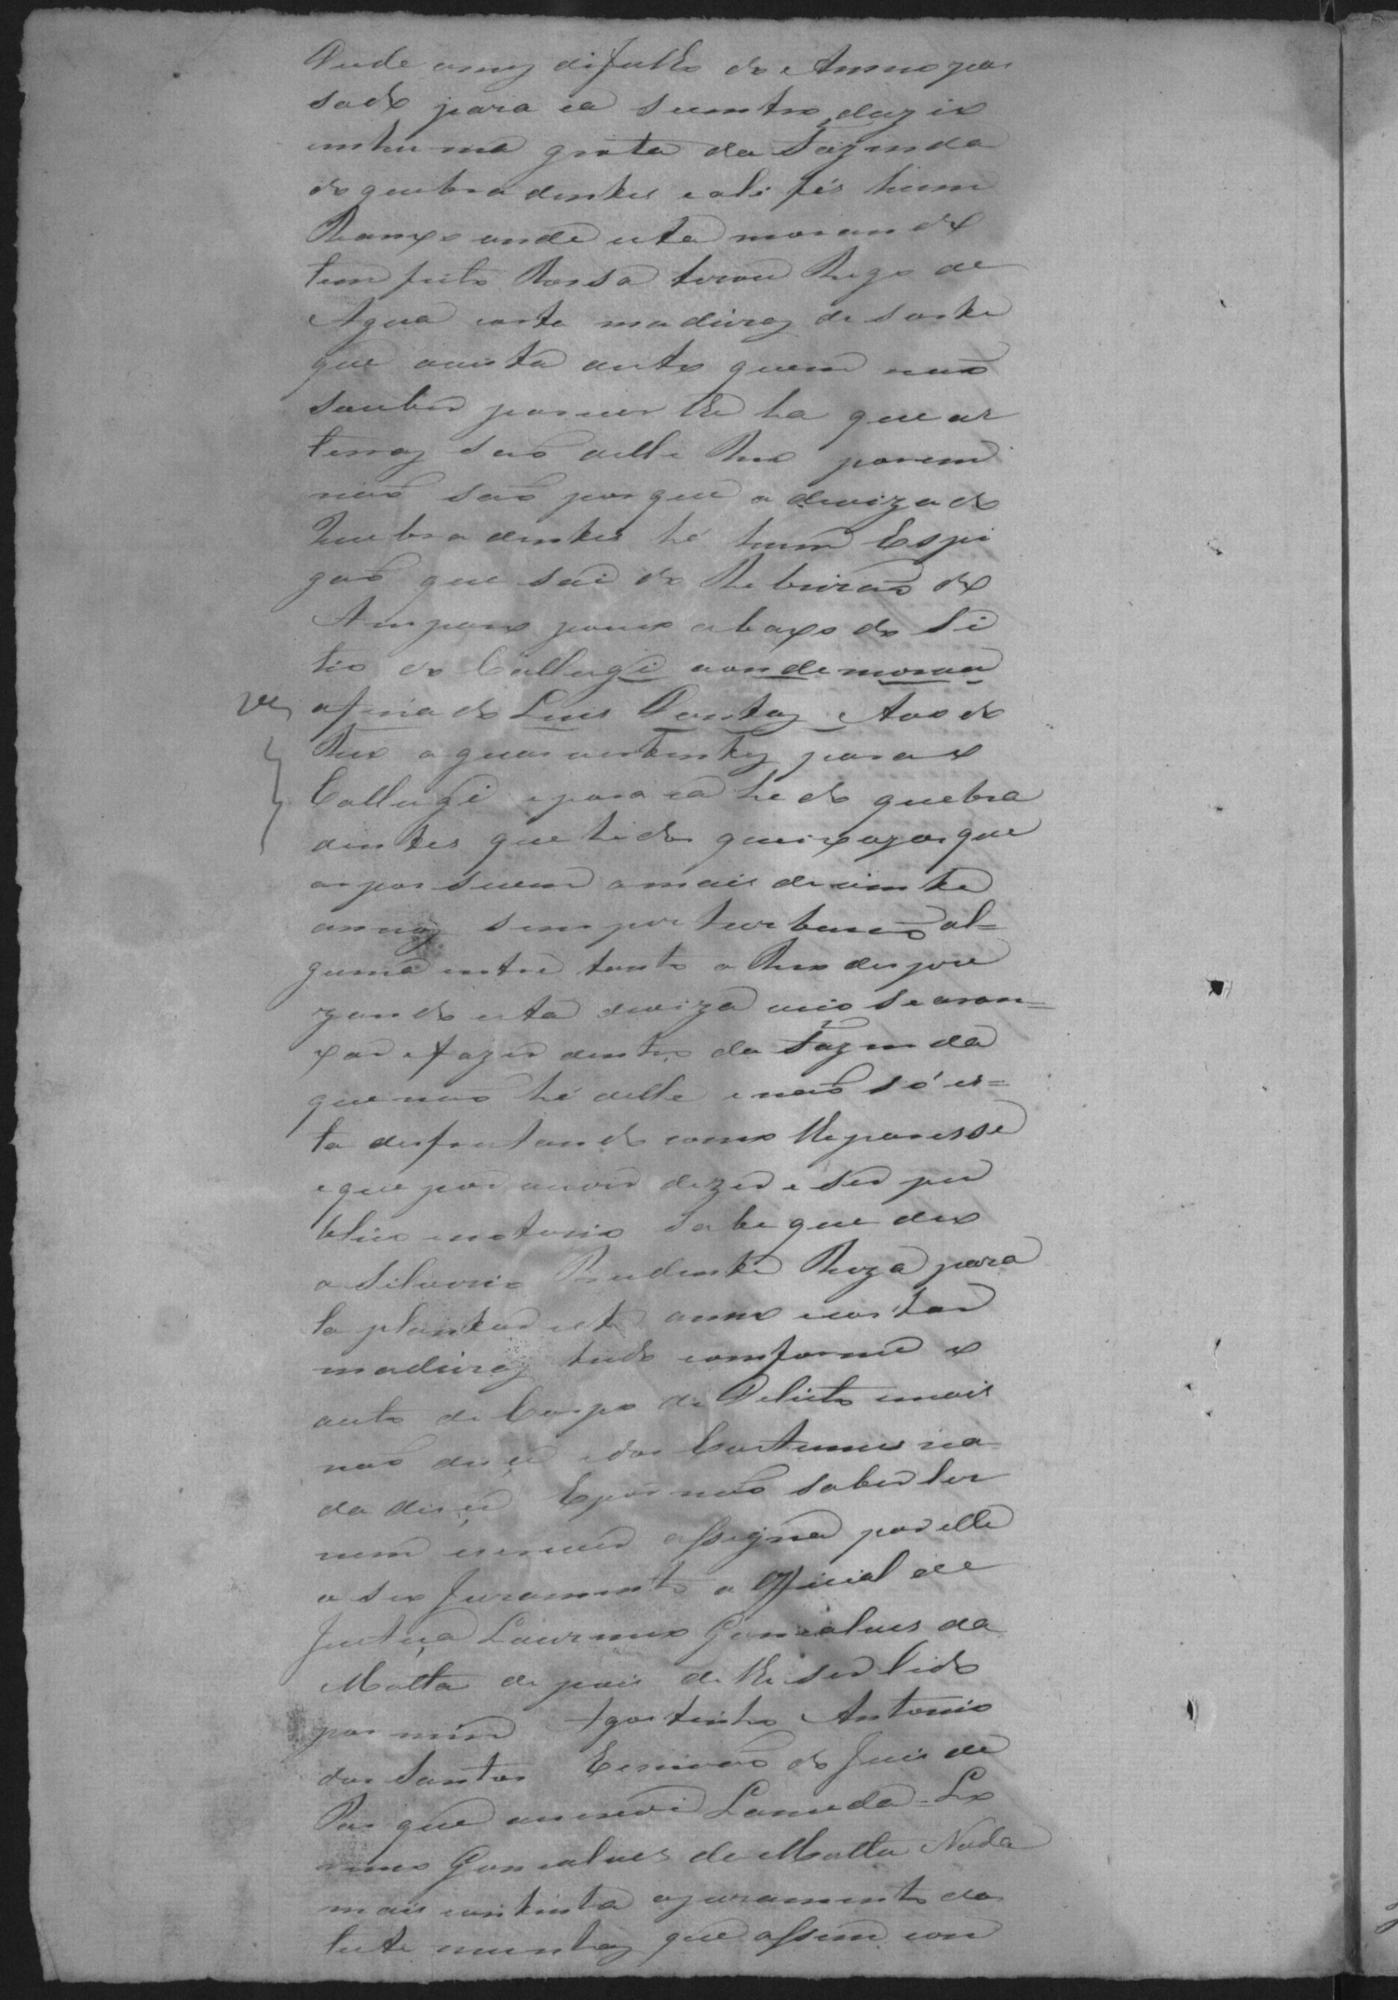 Desde o mez de Julho do Anno pas
sado para ca seentroduzio
em huma grota da Fazenda
do quebra dentes e ali fes hum
Ranxo onde esta morando
tem feito Rossa tirou Rego de
Agua corta madeiras de sorte
que avista disto quem não
souber pareser lhe ha que as
terras são delle Reo porem
não são porque a devizado
Quebra dentes hé hum Espi
gão que sai do Ribeirão do
Amparo pouco abaxo do Si
tio do Collegi aonde morou
afinado Luis Dantas Avo do
ves
Reo aguas vertentes para o
Collegi e para ca he do quebra
dentes que hé dos queixozos que
as possuem a mais de vinte
annos sem perturbacão al=
guma entre tanto o Reo despre
zando esta deviza veio se aran=
xar e fazer dentro da Fazenda
que não hé delle e não só es=
ta desfrutando como lhe paresse
e que por ouvir dizer e ser pu
blico enotorio sabe que deo
a Silverio Prudente Roza para
la plantar este anno e cortar
madeiras tudo comforme o
auto de Corpo de Delicto e mais
não disse e dos Custumes na
da disse E por não saber ler
nem escrever assigna por elle
o seo Juramento o Official de
Justiça Lourenco Goncalves da
Motta depois de lhe ser lido
por mim Agostinho Antonio
dos Santos Escrivão do Juis de
Pas que o escrevi Lameda = Lo
renco Goncalves da Motta Nada
mais continha o juramento das
teste munhas que assim con